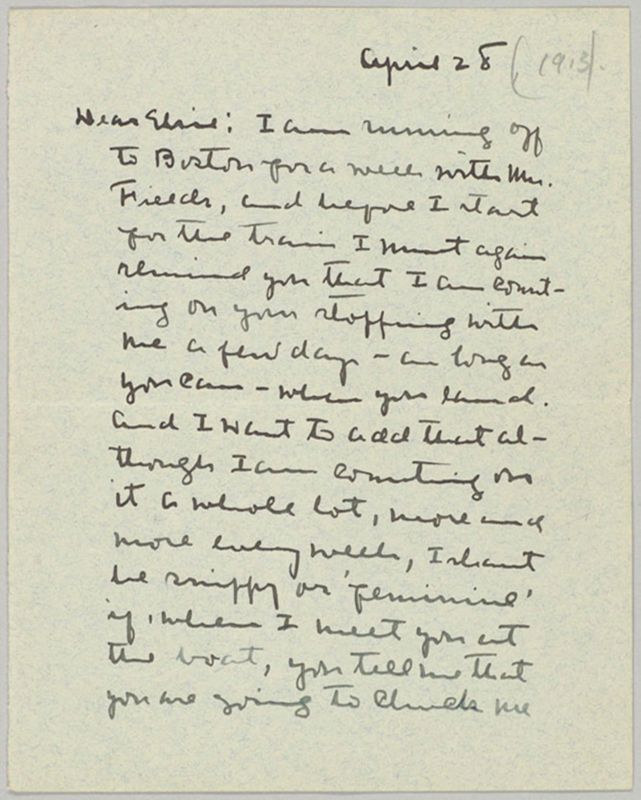 April 28 (1913).
Dear Elsie: I am running off
to Boston for a week with Mrs.
Fields, and before I start
for the train I must again
remind you that I am count-
ing on your stopping with
me a few days – as long as
you can – when you land.
And I want to add that al-
though I am counting on
it a whole lot, more and
more every week, I shant
be snippy or 'feminine'
if, when I meet you at
the boat, you tell me that
you are going to chuck me